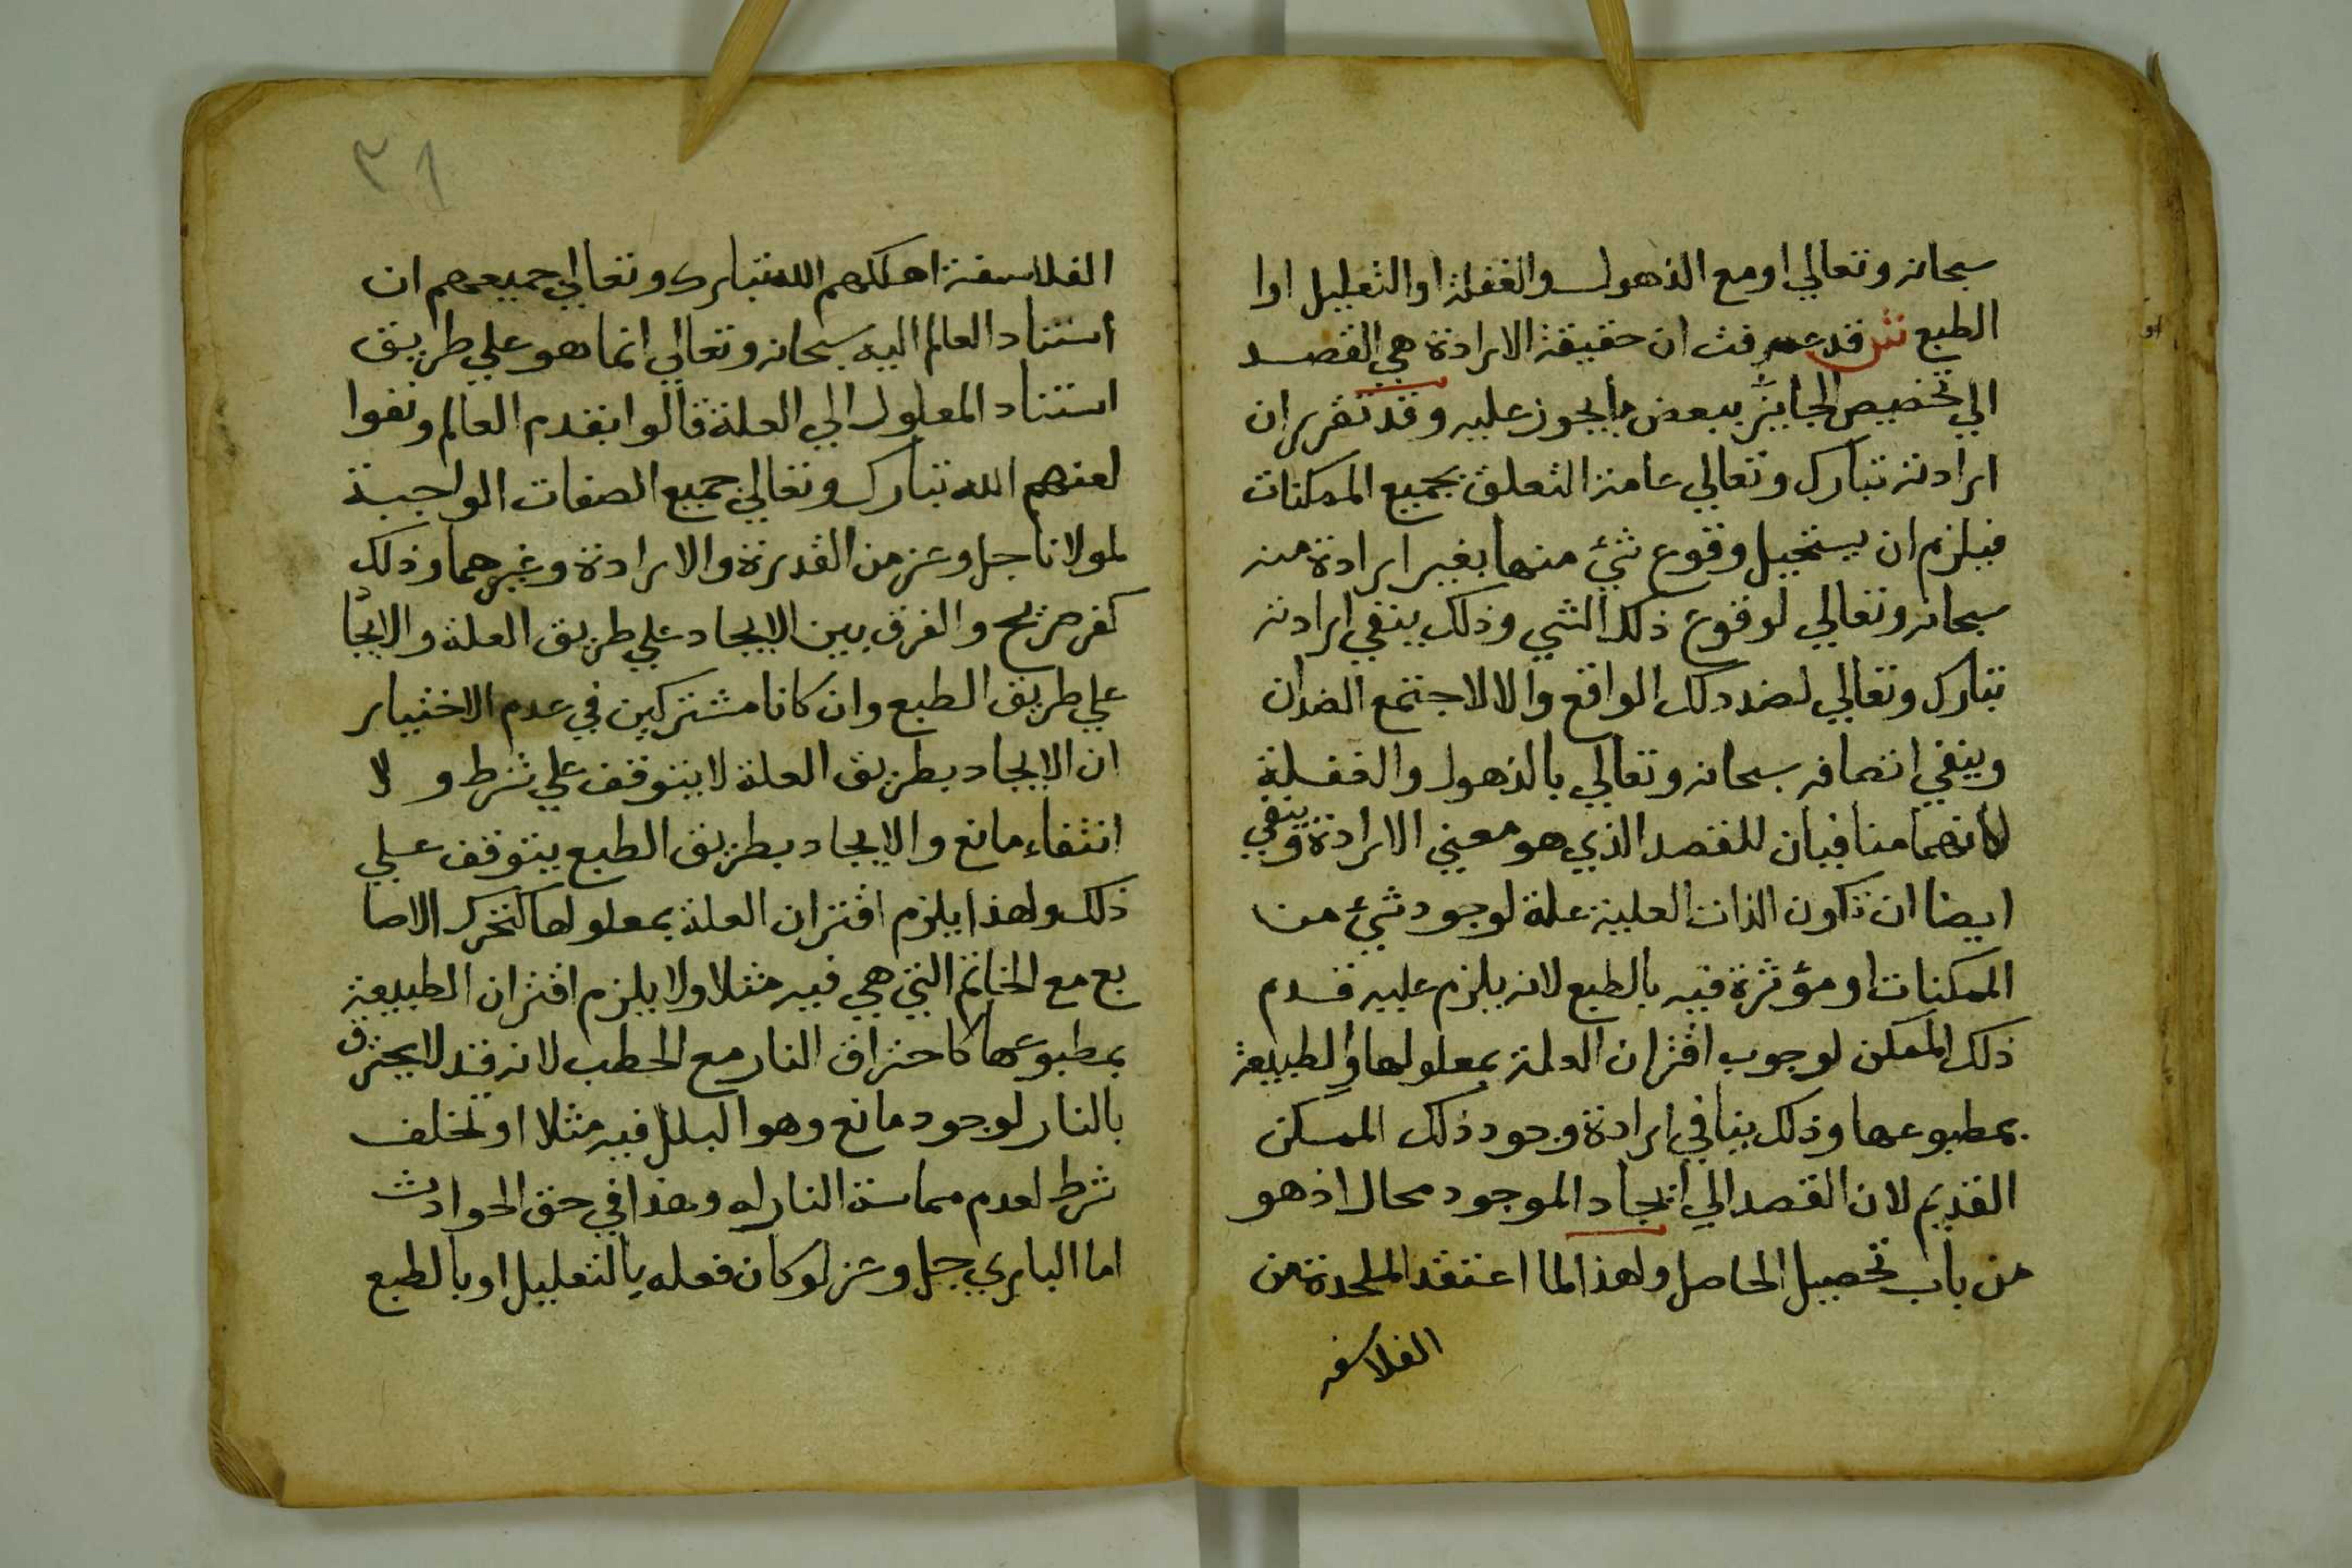 سبحانه وتعالي او مع الذهول والغفلة او التعليل اوا
الطبع ش قد عرفت ان حقيقة الارادة هي القصد
الي تخصيص الجايز ببعض ما يجوز عليه وقد تقرر ان
ارادته تبارك وتعالي عامة التعلق بجميع الممكنات
فيلزم ان يستحيل وقوع شئ منها بغير ارادة منه
سبحانه وتعالي لوقوع ذلك الشي وذلك ينفي ارادته
تبارك وتعالي لضد ذلك الواقع والا لاجتمع الضدان
وينفي اتصافه سبحانه وتعالي بالذهول والغفلة
لانهما منافيان للقصد الذي هو معني الارادة وينفي
ايضا ان تكون الذات العلية علة لوجود شئ من
الممكنات او مؤثرة فيه بالطبع لانه يلزم عليه قدم
ذلك الممكن لوجوب اقتران العلة بمعلولها والطبيعة
بمطبوعها وذلك ينافي ارادة وجود ذلك الممكن
القديم لان القصد الي ايجاد الموجود محال اذ هو
من باب تحصيل الحاصل ولهذا لما اعتقد الملحدة من
الفلاسفه
٣١
الفلاسفة اهلكهم الله تبارك وتعالي جميعهم ان
استناد العالم اليه سبحانه وتعالي انما هو علي طريق
استناد المعلول الي العلة قالوا بقدم العالم ونفوا
لعنهم الله تبارك وتعالي جميع الصفات الواجبة
لمولانا جل وعز من القدرة والارادة وغيرهما وذلك
كفر صريح والفرق بين الايجاد علي طريق العلة والايجا
علي طريق الطبع وان كانا مشتركين في عدم الاختيار
ان الايجاد بطريق العلة لا يتوقف علي شرط و لا
انتفاء مانع والايجاد بطريق الطبع يتوقف علي
ذلك ولهذا يلزم اقتران العلة بمعلولها كتحرك الاصا
بع مع الخاتم التي هي فيه مثلا ولا يلزم اقتران الطبيعة
بمطبوعها كاحتراق النار مع الحطب لانه قد لا يحترق
بالنار لوجود مانع وهو البلل فيه مثلا او تخلف
شرط لعدم مماسة النار له وهذا في حق الحوادث
اما الباري جل وعز لو كان فعله بالتعليل او بالطبع